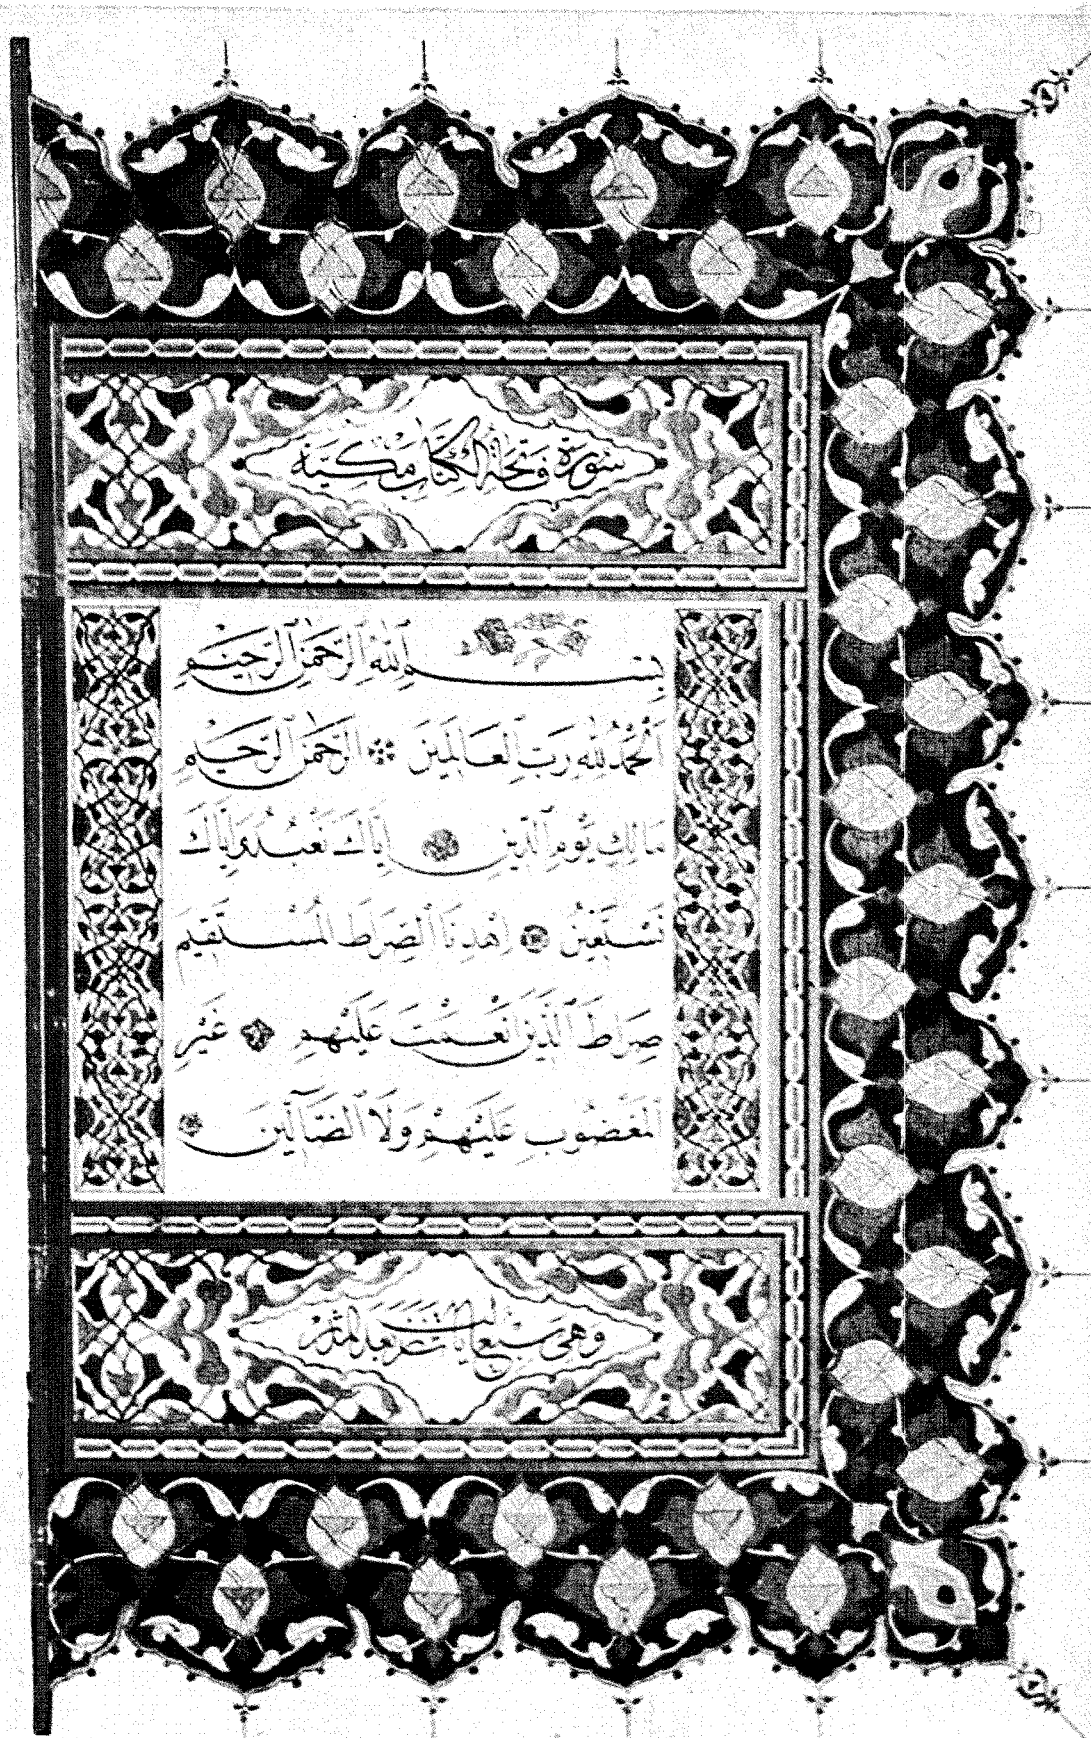 سُورَةُ فَاتِحَةِ الْكِتَابِ مَكِّيَّة
بِسْمِ اللهِ الرَّحْمٰنِ الرَّحِيْمِ
اَلْحَمْدُ لِلّٰهِ رَبِّ الْعَالَمِيْنَ الرَّحْمٰنِ الرَّحِيْمِ
مَالِكِ يَوْمِ الدِّيْنِ اِيَّاكَ نَعْبُدُ وَاِيَّاكَ
نَسْتَعِيْنُ اِهْدِنَا الصِّرَاطَ الْمُسْتَقِيْمَ
صِرَاطَ الَّذِيْنَ اَنْعَمْتَ عَلَيْهِمْ غَيْرِ
الْمَغْضُوبِ عَلَيْهِمْ وَلَا الضَّآلِّيْنَ
وهى سبع ايات نزلت بعد المدثر